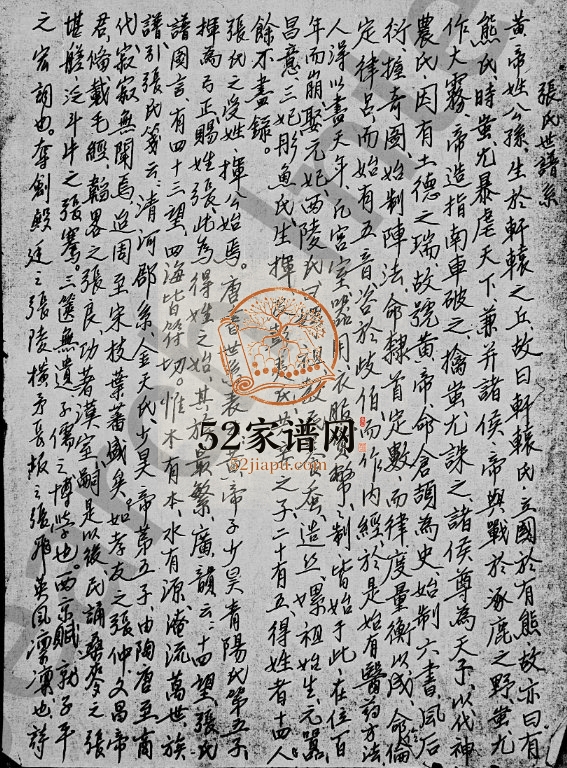 張氏世譜系
黄帝姓公孫生於軒轅之丘故曰軒轅氏立國於有熊故亦曰有
熊氏時蚩尤暴虐天下兼并諸侯帝與戰於涿鹿之野蚩尤
作大霧帝造指南車破之擒蚩尤誅之諸侯尊為天子以代神
農氏因有土德之瑞故號黄帝命倉頡為史始制六書風后
衍握奇圖始制陣法命隸首定數而律度量衡以成命伶倫
定律吕而始有五音咨於岐伯而作内經於是始有醫药方法
人得以盡天年凡宫室器用衣服貨幣之制皆始于此在位百
年而崩娶元妃西陵氏曰嫘祖教民育蚕造丝嫘祖始生元囂
昌意三妃彤魚氏生揮 之子二十有五得姓者十四人
餘不盡録。
張氏之受姓揮公始焉。唐書世系表云黄帝子少昊青陽氏第五子
揮為弓正賜姓張此為得姓之始其族最繁廣韻云十四望張氏
譜圖言有四十三望四海皆符切。惟木有本水有源淹流萬世族
譜引張氏箋云清河郡系金天氏少昊帝第五子由陶唐至商
代寂寂無聞焉迨周至宋枝葉蕃盛矣如孝友之張仲文昌帝
君脩戴毛經韜畧之張良功著漢室嗣是以後民誦桑麥之張
堪槎泛斗牛之張騫三篋無遺子儒之博學也西京賦就子平
之宏詞也奪劍殿廷之張陵橫矛長坂之張飛英風凛凛也詩
52家谱网
52jiapu.com